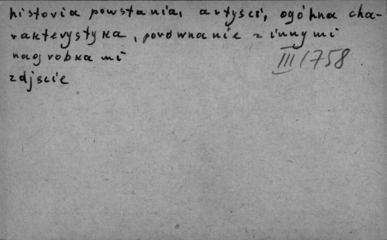 historia powstania, artyści, ogólna cha-
rakterystyka, porównanie z innymi
nagrobkami
III/758
zdjście